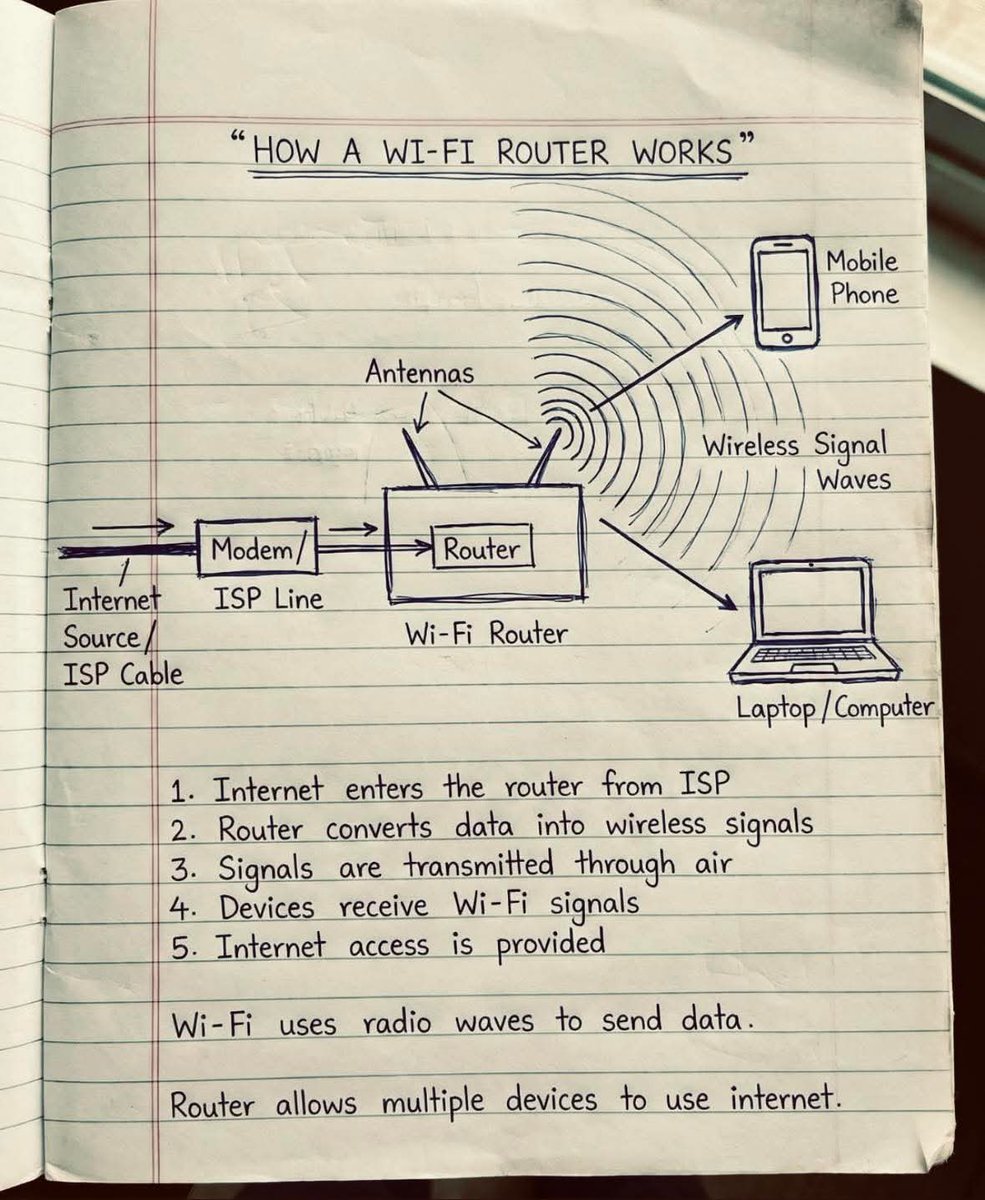 “HOW A WI-FI ROUTER WORKS”
Mobile
Phone
Antennas
Wireless Signal
Waves
Modem/
ISP Line
Router
Internet
Source/
ISP Cable
Wi-Fi Router
Laptop/Computer
1. Internet enters the router from ISP
2. Router converts data into wireless signals
3. Signals are transmitted through air
4. Devices receive Wi-Fi signals
5. Internet access is provided
Wi-Fi uses radio waves to send data.
Router allows multiple devices to use internet.